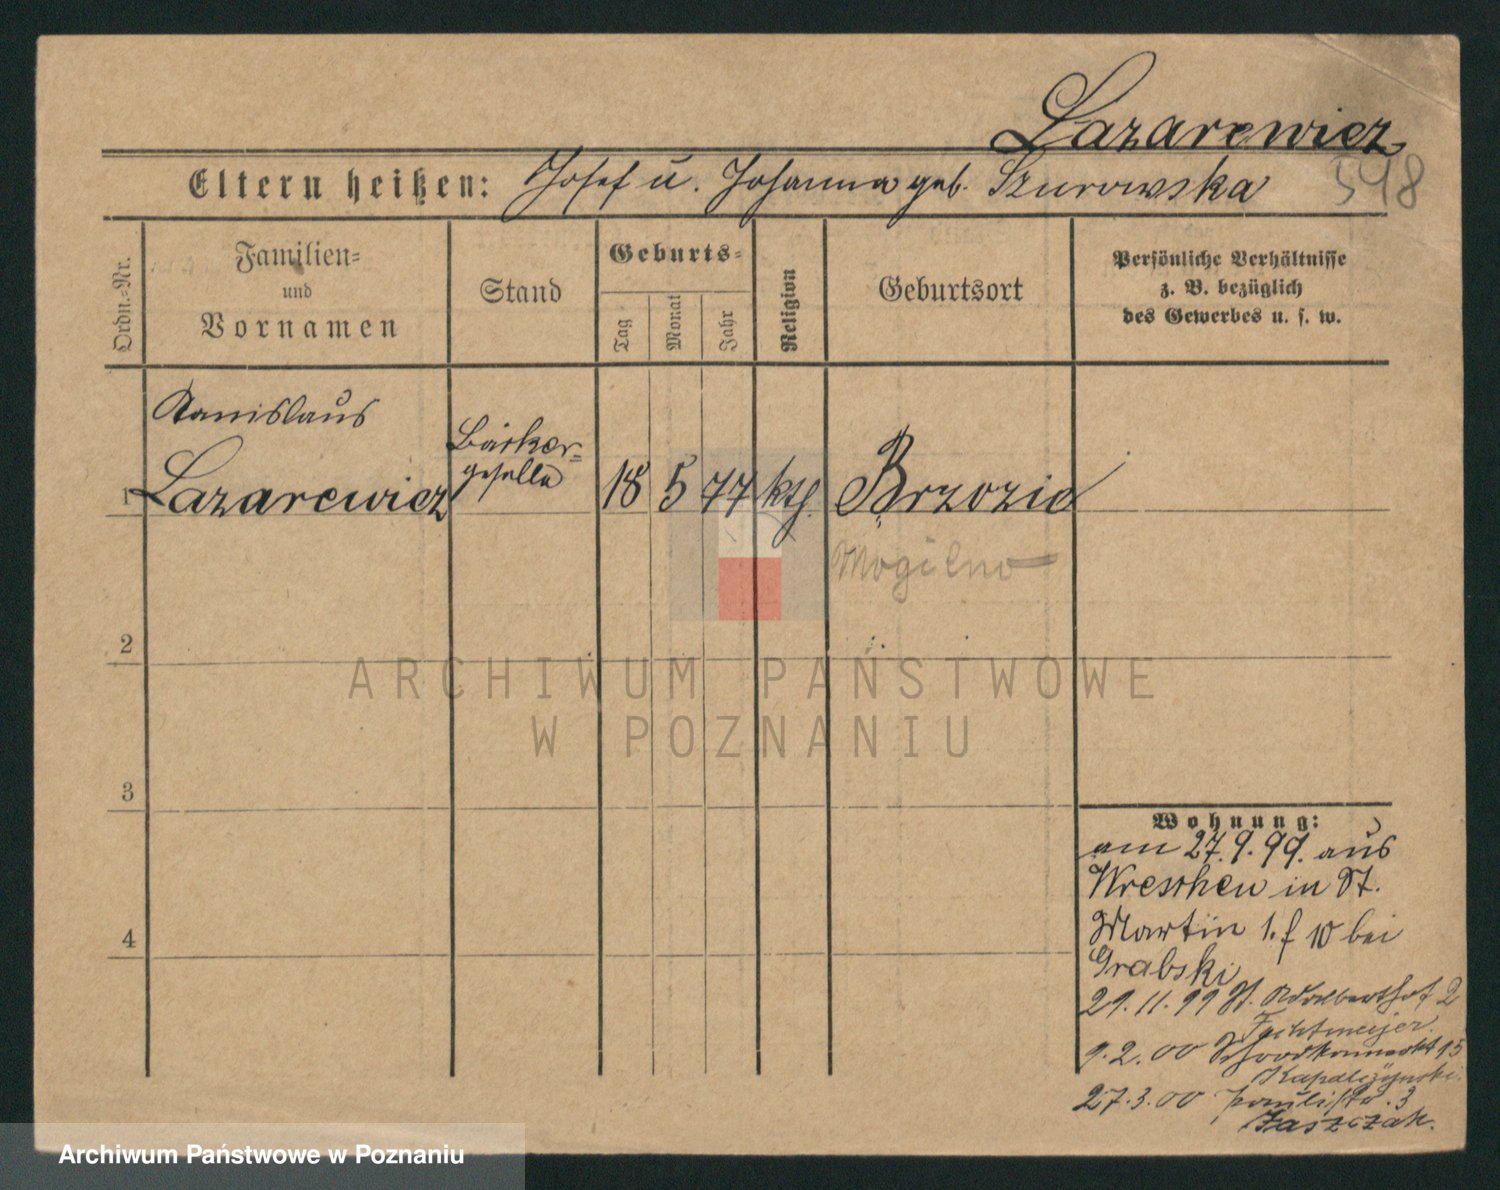 Lazarewicz
Eltern heißen: Josef u. Johanna geb. Szurowska 598
Ordn.=Nr.
Familien=
und
Vornamen
Stand
Geburts=
Tag
Monat
Jahr
Religion
Geburtsort
Persönliche Verhältnisse
z. B. bezüglich
des Gewerbes u. s. w.
Stanislaus
Bäcker-
geselle
1 Lazarewicz 18 5 77 kth.
Mogilno
2
3
4
Wohnung:
am 27.9.99. aus
Wreschen in St.
Martin 1. f 10 bei
Grabski
29.11.99 St. Adalberthof 2
9.2.00 15
27.3.00 3
ARCHIWUM PAŃSTWOWE
W POZNANIU
Archiwum Państwowe w Poznaniu